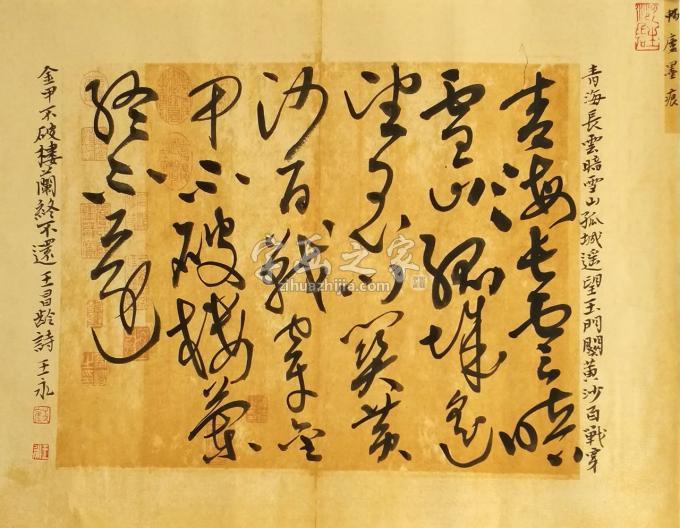 廬墨痕
青海長雲暗雪山孤城遥望玉門關黄沙百戰穿
青海長雲暗
雪山孤城遥
望玉門關黄
沙百戰穿金
甲不破樓蘭
終不還
金甲不破樓蘭終不還王昌齡詩王永
字画之家
www.zihuazhijia.com